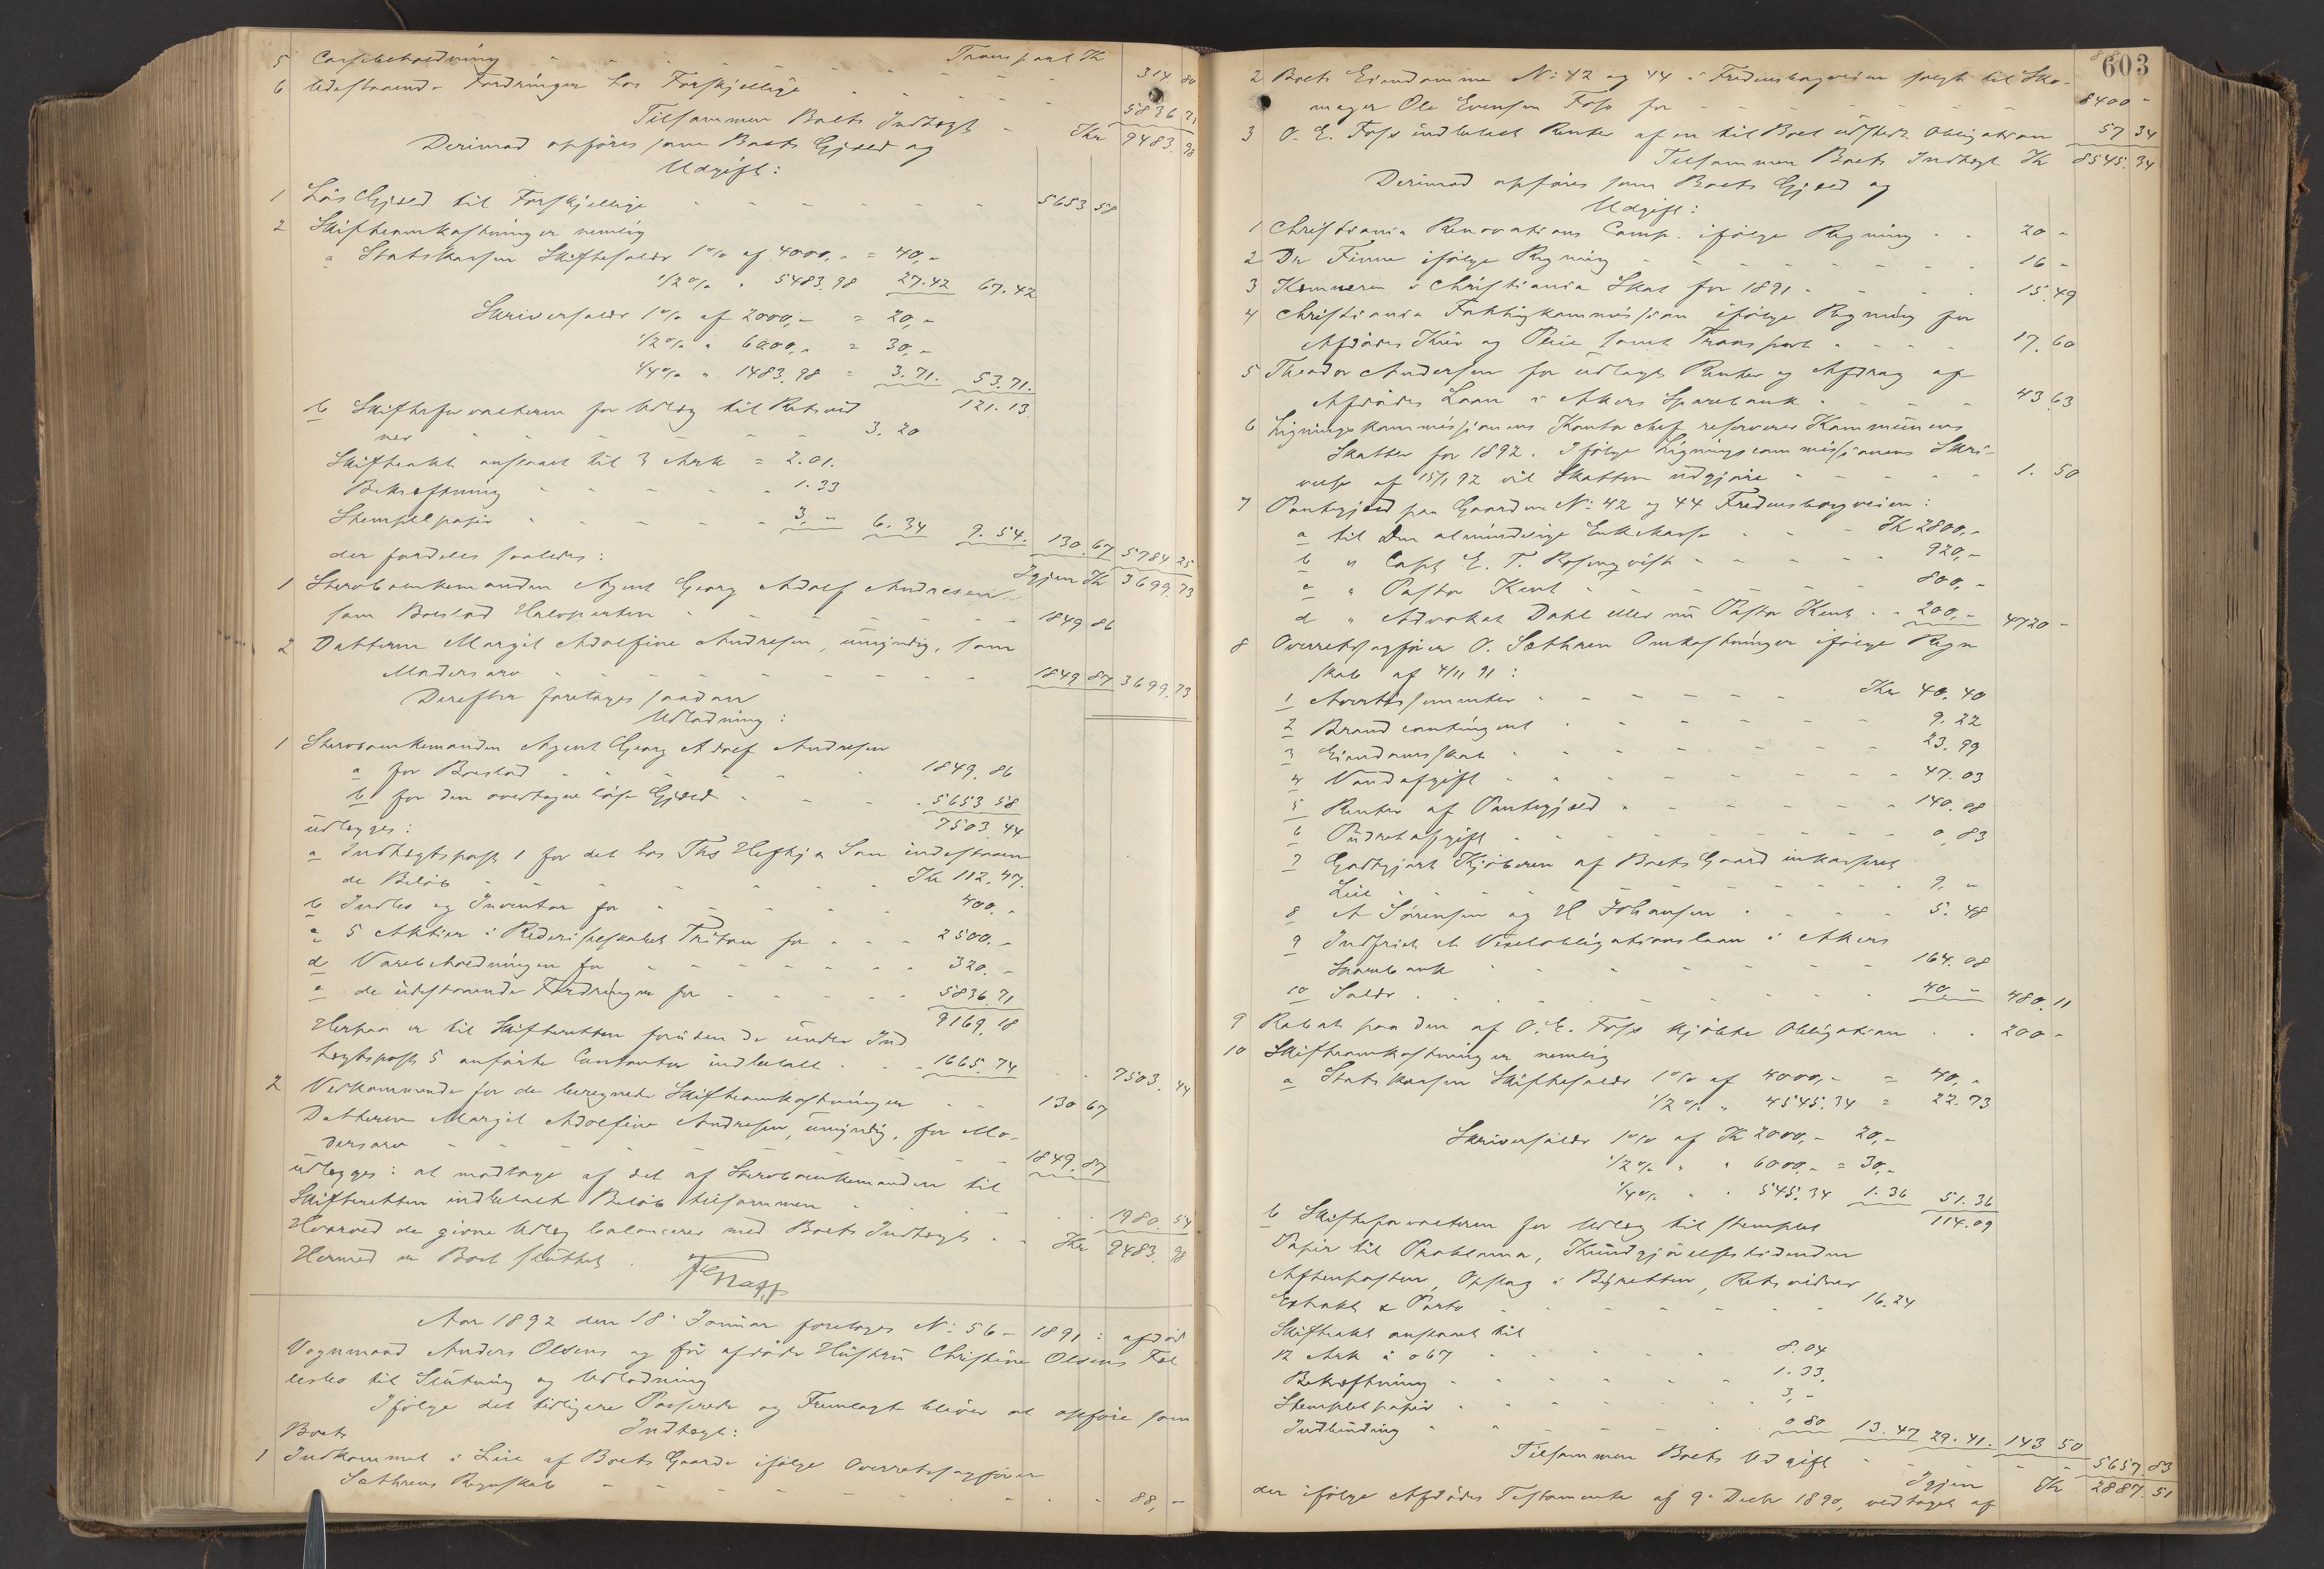 Transport Kr
5 Cassebeholdning - - - - - 314. 80
6 Udestaaende Fordringer hos Forskjellige - - - 5836 71
Tilsammen Boets Indtægt - Kr 9483. 98
Derimod opføres som Boets Gjæld og
Udgift:
1 Løs Gjæld til Forskjellige - - - - - - - 5653 58
2 Skifteomkostninger nemlig
a Statskassen Skiftesalær 1% af 4000,- = 40,-
1/2% " 5483.98 27.42 67.42
Skriversalær 1% af 2000,- = 20,-
1/2% " 6000,- = 30,-
1/4% " 1483.98 = 3.71. 53.71.
121.13.
b Skifteforvalteren for Udlæg til Retsvid
ner - - - - - - 3. 20
Skifteakt anslaaet til 3 Ark = 2.01.
Bekræftning - - - - - 1.33
Stemplet papir - - - - - 3,- 6.34 9.54. 130.67 5784 25
Igjen Kr 3699.73
der fordeles saaledes:
1 Sterboenkemanden Agent Georg Adolf Andresen
som Boeslod Halvparten - - - - - 1849 86
2 Datteren Margit Adolfine Andresen, umyndig, som
Modersarv - - - - - - - 1849 87 3699.73
Derefter foretages saadan
Udlodning:
1 Sterboenkemanden Agent Georg Adolf Andresen
a for Boeslod - - - - - - 1849. 86
b for den overtagne løse Gjæld - - - - 5653 58
7503. 44
udlægges:
a Indtægtspost 1 for det hos Ths Heftye & Søn indestaaen
de Beløb - - - - - - Kr 112.47.
b Indbo og Inventar for - - - - - 400.-
c 5 Aktier i Rederiselskabet Triton for - - - 2500.-
d Varebeholdningen for - - - - - - 320.-
e de udestaaende Fordringer for - - - - 5836.71
9169. 18
Herpaa er til Skifteretten foruden de under Ind
tægtspost 5 anførte Contanter indbetalt - - - 1665. 74 - - 7503. 44
2 Vedkommende for de beregnede Skifteomkostninger - - 130 67
Datteren Margit Adolfine Andresen, umyndig, for Mo-
dersarv - - - - - - - 1849. 87
udlægges: at modtage af det af Sterboenkemanden til
Skifteretten indbetalte Beløb tilsammen - - - - - 1980. 54
Hvorved de givne Udlæg balancerer med Boets Indtægt - - Kr 9483. 98
Hermed er Boet sluttet.
Aar 1892 den 18 Januar foretages No: 56 - 1891: afdød
Vognmand Anders Olsens og før afdøde Hustru Christine Olsens Fæl
lesbo til Slutning og Udlodning
Ifølge det tidligere Passerede og Fremlagte bliver at opføre som
Boets Indtægt:
1 Indkommet i Leie af Boets Gaarde ifølge Overretssagfører
Sæthrens Regnskab - - - - - - - - 88,-
603
2 Boets Eiendomme No: 42 og 44 i Fredensborgveien solgt til Sko-
mager Ole Evensen Foss for - - - - - - - 8400 -
3 O. E. Foss indbetalt Renter af en til Boet udstedt Obligation 57 34
Tilsammen Boets Indtægt Kr 8545. 34
Derimod opføres som Boets Gjæld og
Udgift:
1 Christiania Renovations Comp. ifølge Regning - - 20 -
2 Dr Finne ifølge Regning - - - - - - - 16 -
3 Kemneren i Christiania Skat for 1891 - - - - 15.49
4 Christiania Fattigkommission ifølge Regning for
Afdødes Kur og Pleie samt Transport - - - - 17.60
5 Theodor Andersen for udlagte Renter og Afdrag af
Afdødes Laan i Akers Sparebank - - - - 43 63
6 Ligningskommissionens Kontorchef reserveres Kommunens
Skatter for 1892. Ifølge Ligningscommissionens Skri-
velse af 15/1 92 vil Skatten udgjøre - - - - 1. 50
7 Pantegjæld paa Gaardene No: 42 og 44 Fredensborgveien:
a til Den almindelige Enkekasse - - - Kr 2800,-
b " Capt E. T. Rosenqvist - - - - 920,-
c " Pastor Kent - - - - - 800,-
d " Advokat Dahl eller nu Pastor Kent - - 200,- 4720 -
8 Overretssagfører O. Sæthren Omkostninger ifølge Regn
skab af 4/11 91:
1 Avertissementer - - - - - - Kr 40. 40
2 Brandcontingent - - - - - - 9. 22
3 Eiendomsskat - - - - - - 23. 99
4 Vandafgift - - - - - - - 47.03
5 Renter af Pantegjæld - - - - - - 140.08
6 Pudretafgift - - - - - - - 0 83
7 Godtgjort Kjøberen af Boets Gaard inkasseret
Leie - - - - - - - - 9. -
8 A Sørensen og H Johansen - - - - 5. 48
9 Indfriet et Vexelobligationslaan i Akers
Sparebank - - - - - - - 164.08
10 Salær - - - - - - - - 40,- 480.11
9 Rabat paa den af O. E. Foss kjøbte Obligation - - 200 -
10 Skifteomkostninger nemlig
a Statskassen Skiftesalær 1% af 4000,- = 40,-
1/2% " 4545.34 = 22.73
Skriversalær 1% af Kr 2000,- 20,-
1/2% " " 6000.- = 30,-
1/4% " " 545.34 1.36 51.36
114.09
b Skifteforvalteren for Udlæg til stemplet
Papir til Proklama, Kundgjørelsestidenden
Aftenposten, Opslag i Byretten, Retsvidner
Extrakt & Porto - - - - - - 16.24
Skifteakt anslaaet til
12 Ark à 067 - - - - - 8.04
Bekræftning - - - - - - 1.33.
Stemplet papir - - - - - 3,-
Indbinding - - - - - - 0 80 13.47 29.41. 143 50
Tilsammen Boets Udgift - - - - 5657.83
Igjen Kr 2887.51
der ifølge Afdødes Testamente af 9 Decbr 1890, vedtaget af